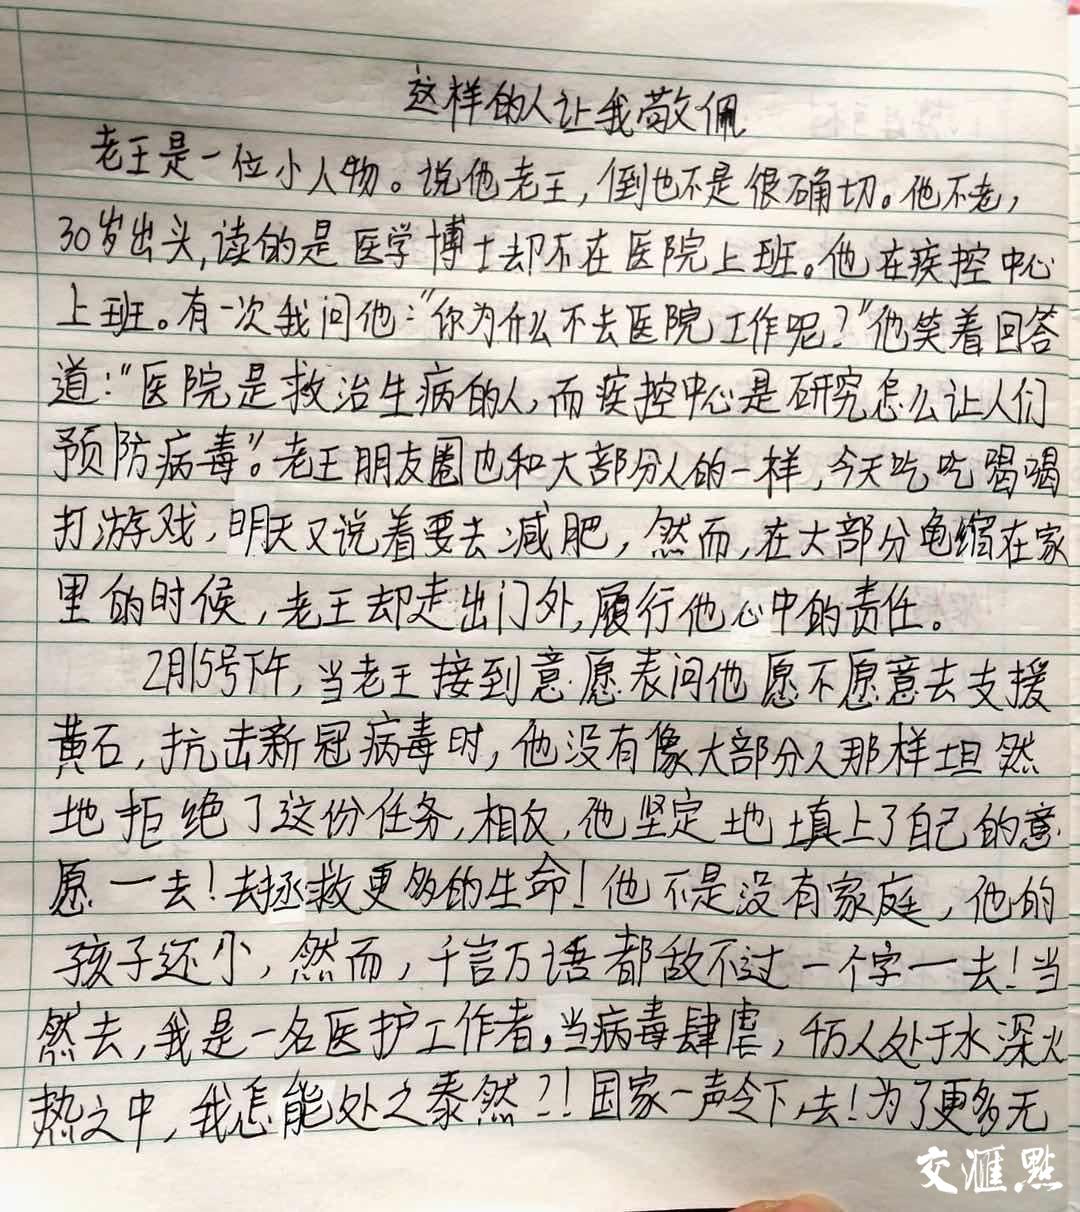 这样的人让我敬佩
老王是一位小人物。说他老王,倒也不是很确切。他不老,
30岁出头,读的是医学博士却不在医院上班。他在疾控中心
上班。有一次我问他:"你为什么不去医院工作呢?"他笑着回答
道:"医院是救治生病的人,而疾控中心是研究怎么让人们
预防病毒"。老王朋友圈也和大部分人的一样,今天吃吃喝喝
打游戏,明天又说着要去减肥,然而,在大部分龟缩在家
里的时候,老王却走出门外,履行他心中的责任。
2月15号下午,当老王接到意愿表问他愿不愿意去支援
黄石,抗击新冠病毒时,他没有像大部分人那样坦然
地拒绝了这份任务,相反,他坚定地填上了自己的意
愿一去!去拯救更多的生命!他不是没有家庭,他的
孩子还小,然而,千言万语都敌不过一个字一去!当
然去,我是一名医护工作者,当病毒肆虐,千万人处于水深火
热之中,我怎能处之泰然?!国家一声令下,去!为了更多无
交滙點